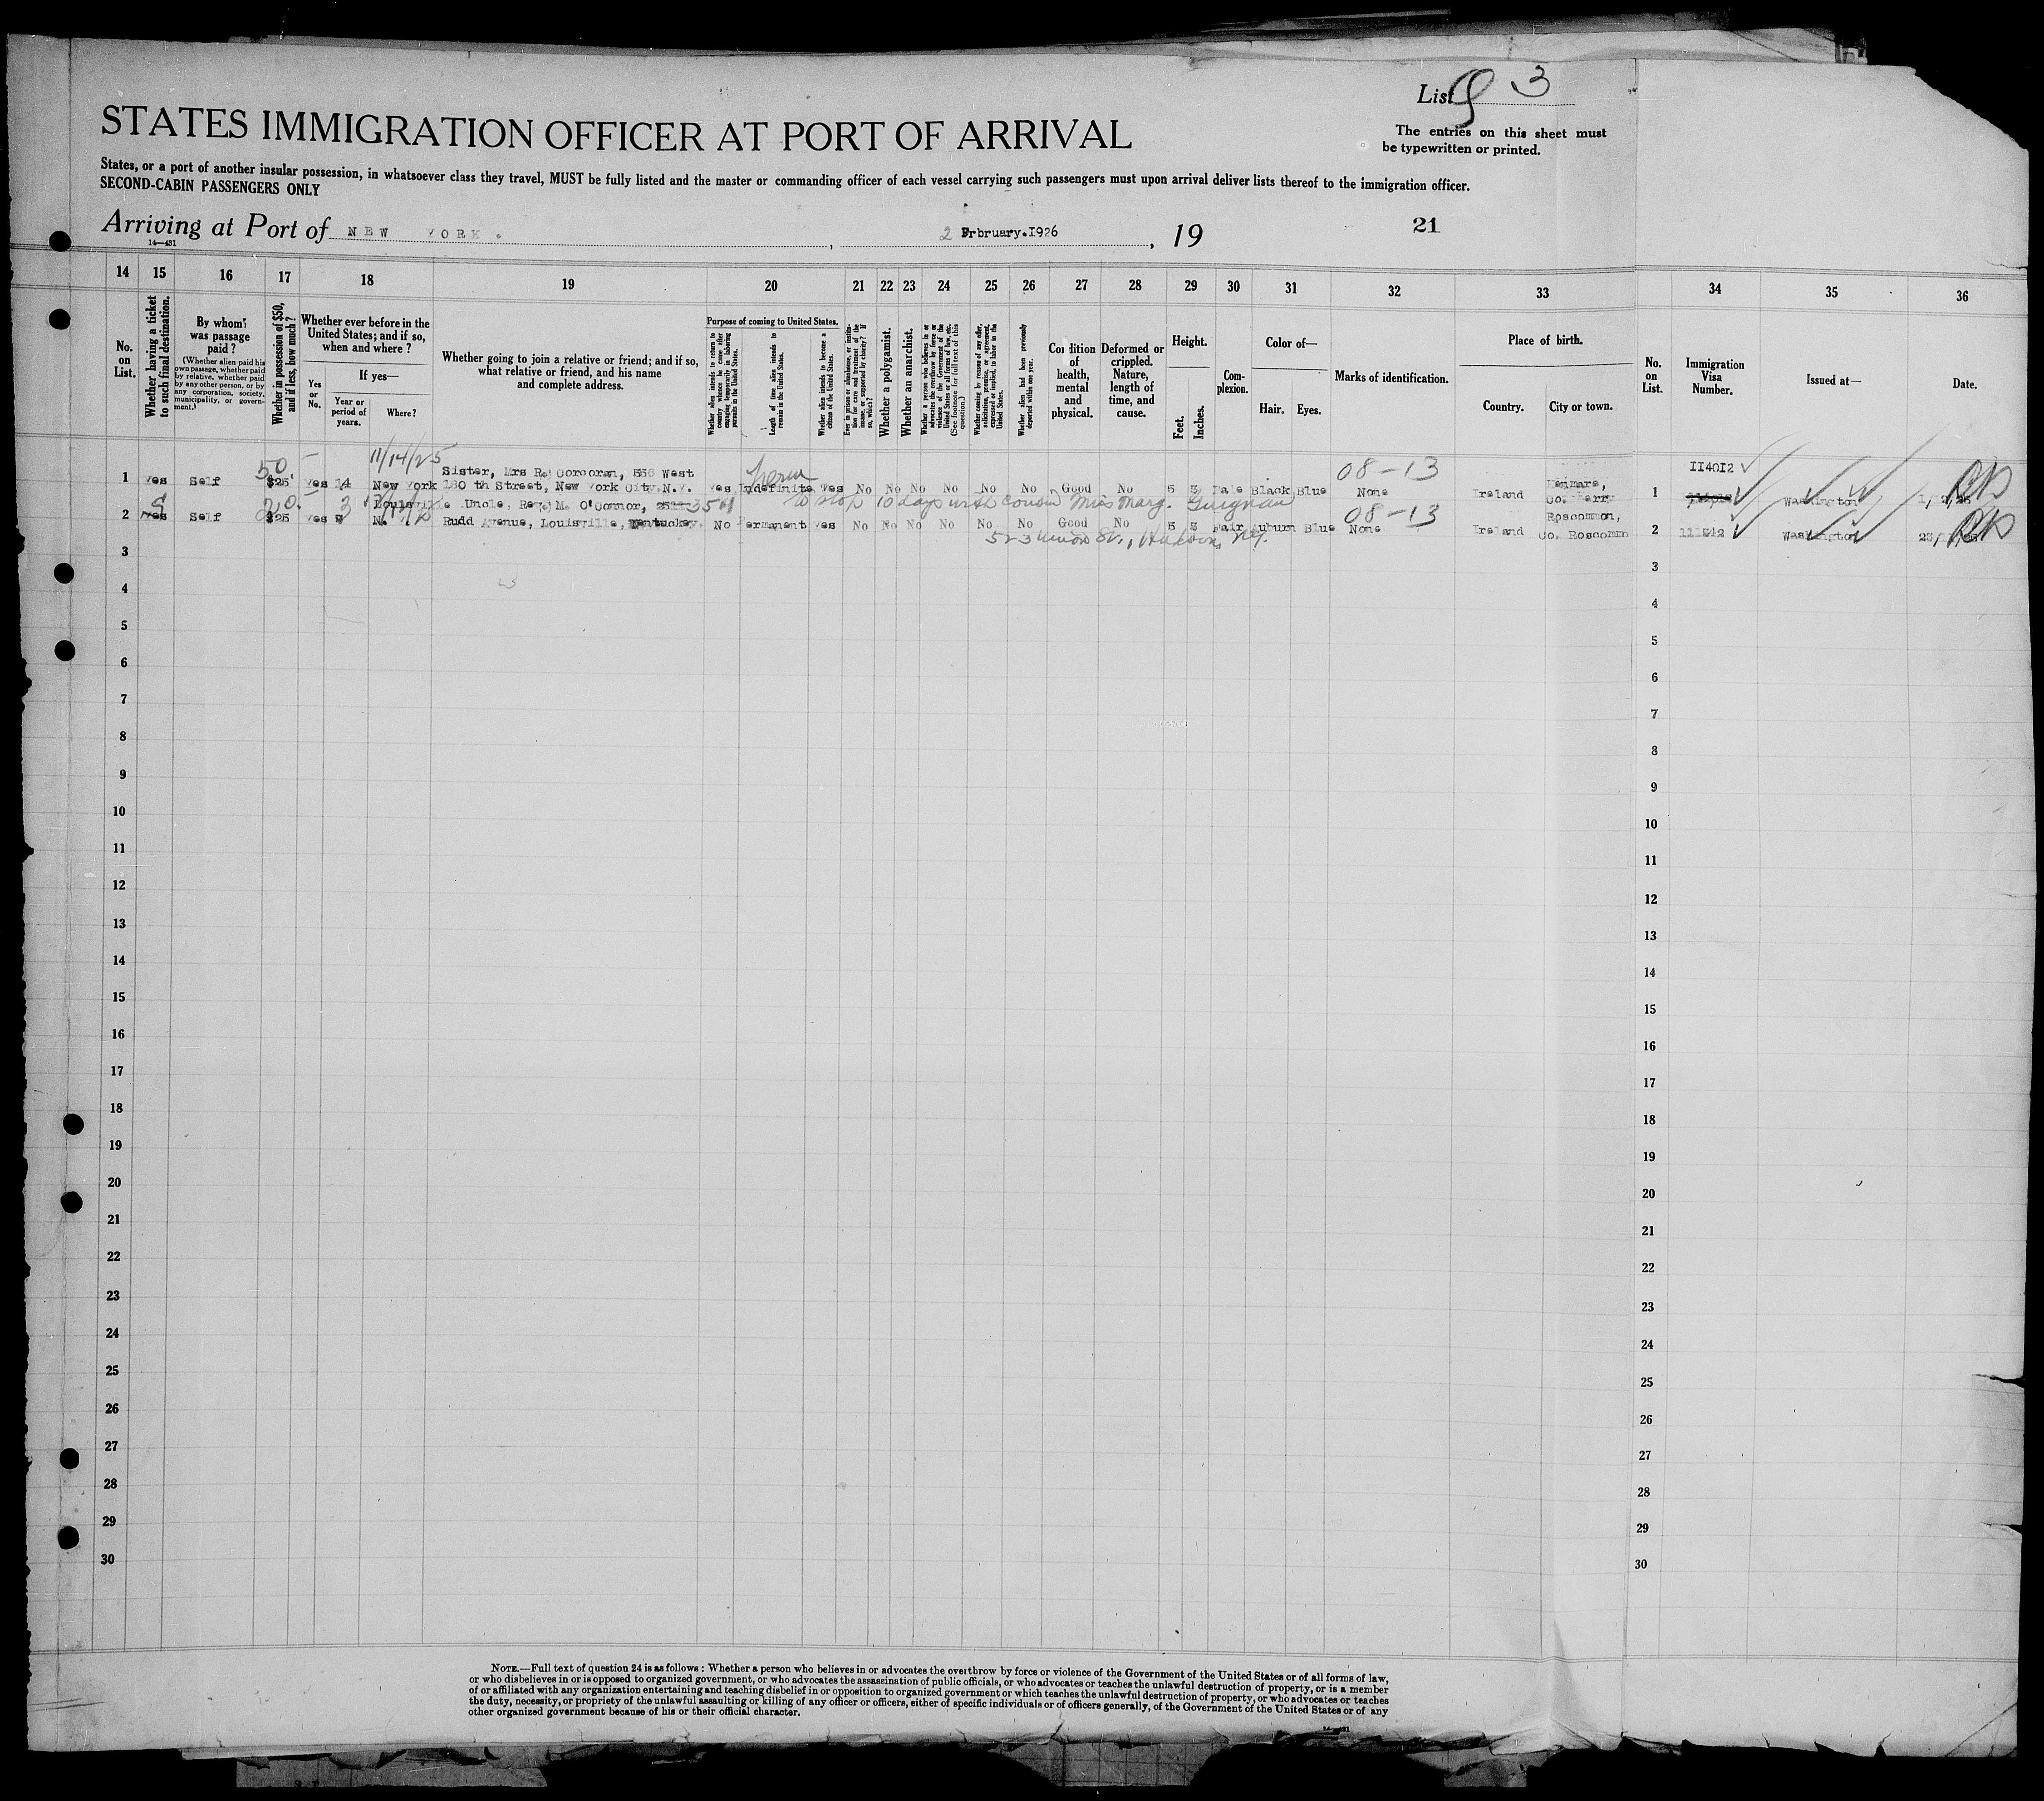 List 3
STATES IMMIGRATION OFFICER AT PORT OF ARRIVAL
The entries on this sheet must
be typewritten or printed.
States, or a port of another insular possession, in whatsoever class they travel, MUST be fully listed and the master or commanding officer of each vessel carrying such passengers must upon arrival deliver lists thereof to the immigration officer.
SECOND-CABIN PASSENGERS ONLY
Arriving at Port of NEW YORK. , 2 Frbruary.1926 , 19
21
14—431
14 15 16 17 18 19 20 21 22 23 24 25 26 27 28 29 30 31 32 33 34 35 36
No. on List.
Whether having a ticket to such final destination.
By whom was passage paid?
(Whether alien paid his own passage, whether paid by relative, whether paid by any other person, or by any corporation, society, municipality, or government.)
Whether in possession of $50, and if less, how much?
Whether ever before in the United States; and if so, when and where?
Yes or No.
If yes—
Year or period of years.
Where?
Whether going to join a relative or friend; and if so, what relative or friend, and his name and complete address.
Purpose of coming to United States.
Whether alien intends to return to country whence he came after engaging temporarily in laboring pursuits in the United States.
Length of time alien intends to remain in the United States.
Whether alien intends to become a citizen of the United States.
Ever in prison or almshouse, or institution for care and treatment of the insane, or supported by charity? If so, which?
Whether a polygamist.
Whether an anarchist.
Whether a person who believes in or advocates the overthrow by force or violence of the Government of the United States or all forms of law, etc. (See footnote for full text of this question.)
Whether coming by reason of any offer, solicitation, promise, or agreement, expressed or implied, to labor in the United States.
Whether alien had been previously deported within one year.
Condition of health, mental and physical.
Deformed or crippled. Nature, length of time, and cause.
Height.
Feet.
Inches.
Complexion.
Color of—
Hair. Eyes.
Marks of identification.
Place of birth.
Country. City or town.
No. on List.
Immigration Visa Number.
Issued at—
Date.
50 11/14/25 Perm 08-13
Sister, Mrs R. Corcoran, 556 West Kenmare, II4012
1 Yes Self $25 Yes 14 New York 180 th Street, New York City.N.Y. Yes Indefinite Yes No No No No No No Good No 5 3 Pale Black Blue None Ireland Co. Kerry 1 Washington
S 20. 3 Louisville Uncle, Rev. M. O'Connor, 3541 to stop 10 days with cousin Miss Marg. Guignan 08-13 Roscommon,
2 Yes Self $25 Yes Rudd Avenue, Louisville, Kentucky. No Permanent Yes No No No No No No Good No 5 3 Fair Auburn Blue None Ireland Co. Roscomm 2 Washington
523 Union St., Hudson, NY.
3 3
4 4
5 5
6 6
7 7
8 8
9 9
10 10
11 11
12 12
13 13
14 14
15 15
16 16
17 17
18 18
19 19
20 20
21 21
22 22
23 23
24 24
25 25
26 26
27 27
28 28
29 29
30 30
NOTE.—Full text of question 24 is as follows: Whether a person who believes in or advocates the overthrow by force or violence of the Government of the United States or of all forms of law,
or who disbelieves in or is opposed to organized government, or who advocates the assassination of public officials, or who advocates or teaches the unlawful destruction of property, or is a member
of or affiliated with any organization entertaining and teaching disbelief in or opposition to organized government or which teaches the unlawful destruction of property, or who advocates or teaches
the duty, necessity, or propriety of the unlawful assaulting or killing of any officer or officers, either of specific individuals or of officers generally, of the Government of the United States or of any
other organized government because of his or their official character.
14—431